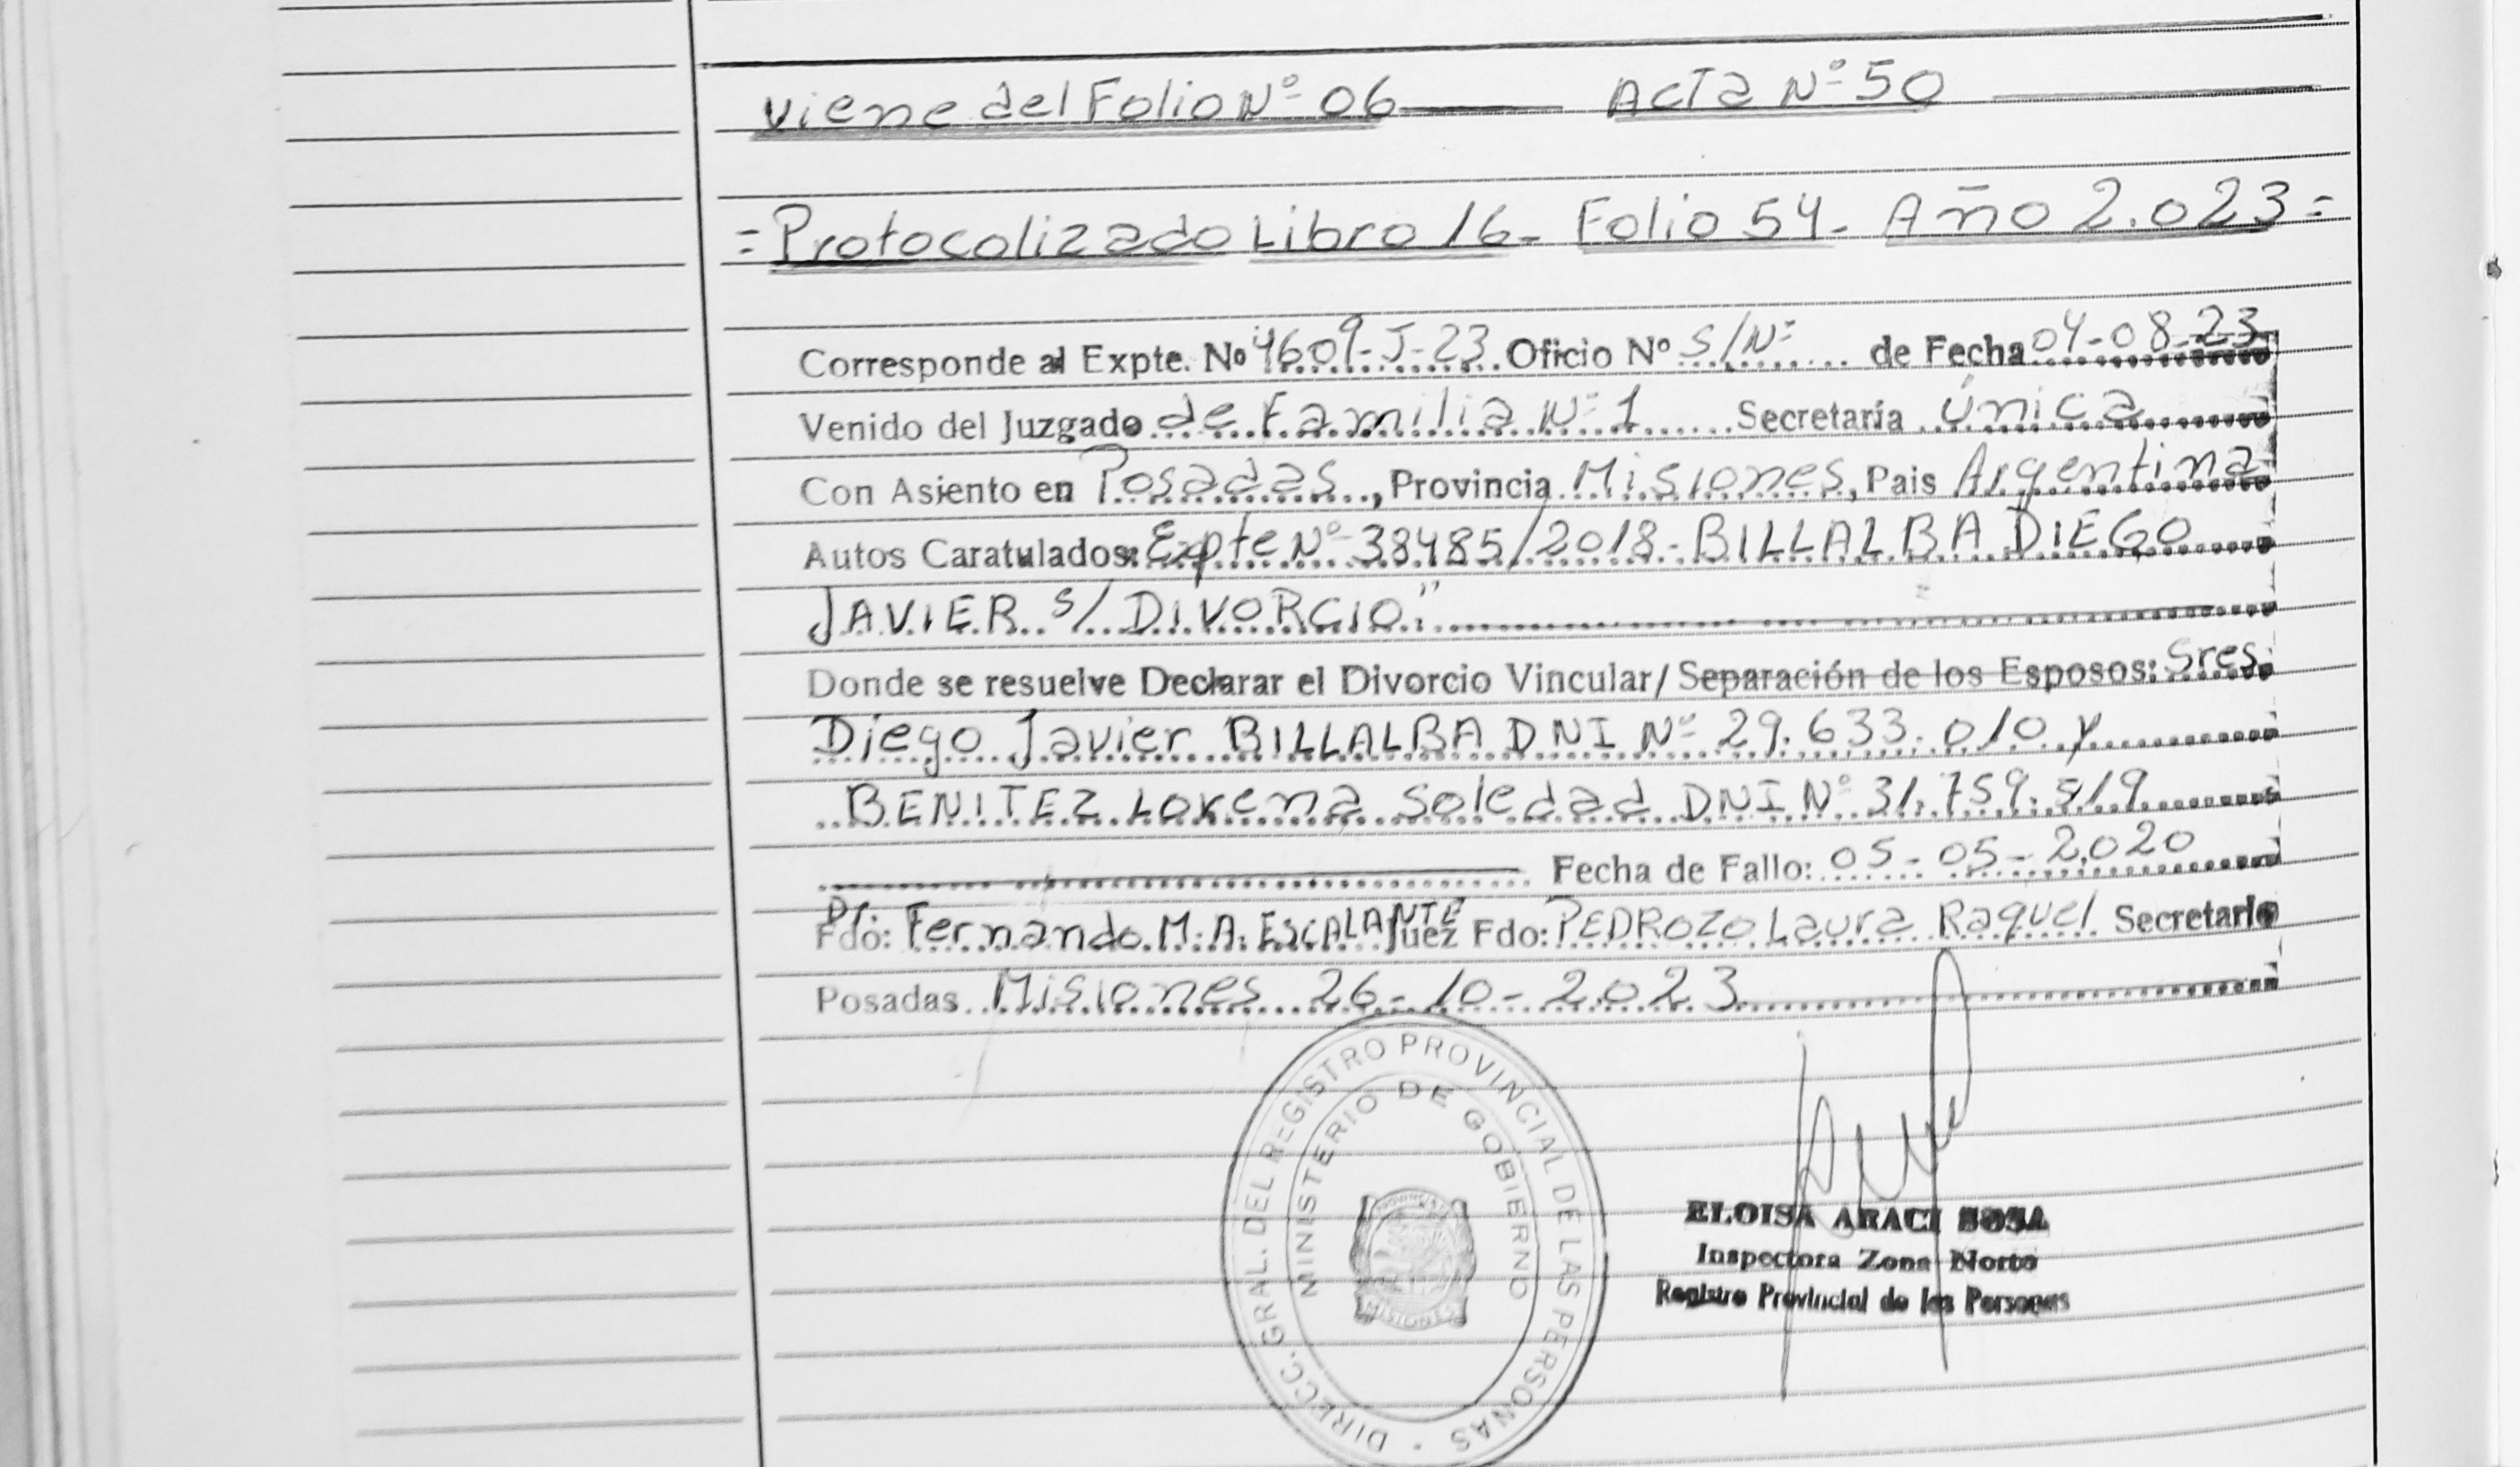 viene del Folio Nº 06 Acta Nº 50
= Protocolizado Libro 16 - Folio 54 - Año 2.023 =
Corresponde al Expte. Nº 4609-J-23 Oficio Nº S/Nº de Fecha 04-08-23
Venido del Juzgado de Familia Nº 1 Secretaría única
Con Asiento en Posadas, Provincia Misiones, Pais Argentina
Autos Caratulados: Expte Nº 38485/2018 - BILLALBA DIEGO
JAVIER s/ DIVORCIO"
Donde se resuelve Declarar el Divorcio Vincular/ Separación de los Esposos: Sres.
Diego Javier BILLALBA DNI Nº 29.633.010 y
BENITEZ Lorena Soledad DNI Nº 31.759.519
Fecha de Fallo: 05-05-2.020
Fdo: Dr. Fernando M. A. ESCALANTE Juez Fdo: PEDROZO Laura Raquel Secretario
Posadas Misiones 26-10-2.023
DIRECC. GRAL. DEL REGISTRO PROVINCIAL DE LAS PERSONAS
MINISTERIO DE GOBIERNO
MISIONES
ELOISA ARACI SOSA
Inspectora Zona Norte
Registro Provincial de las Personas